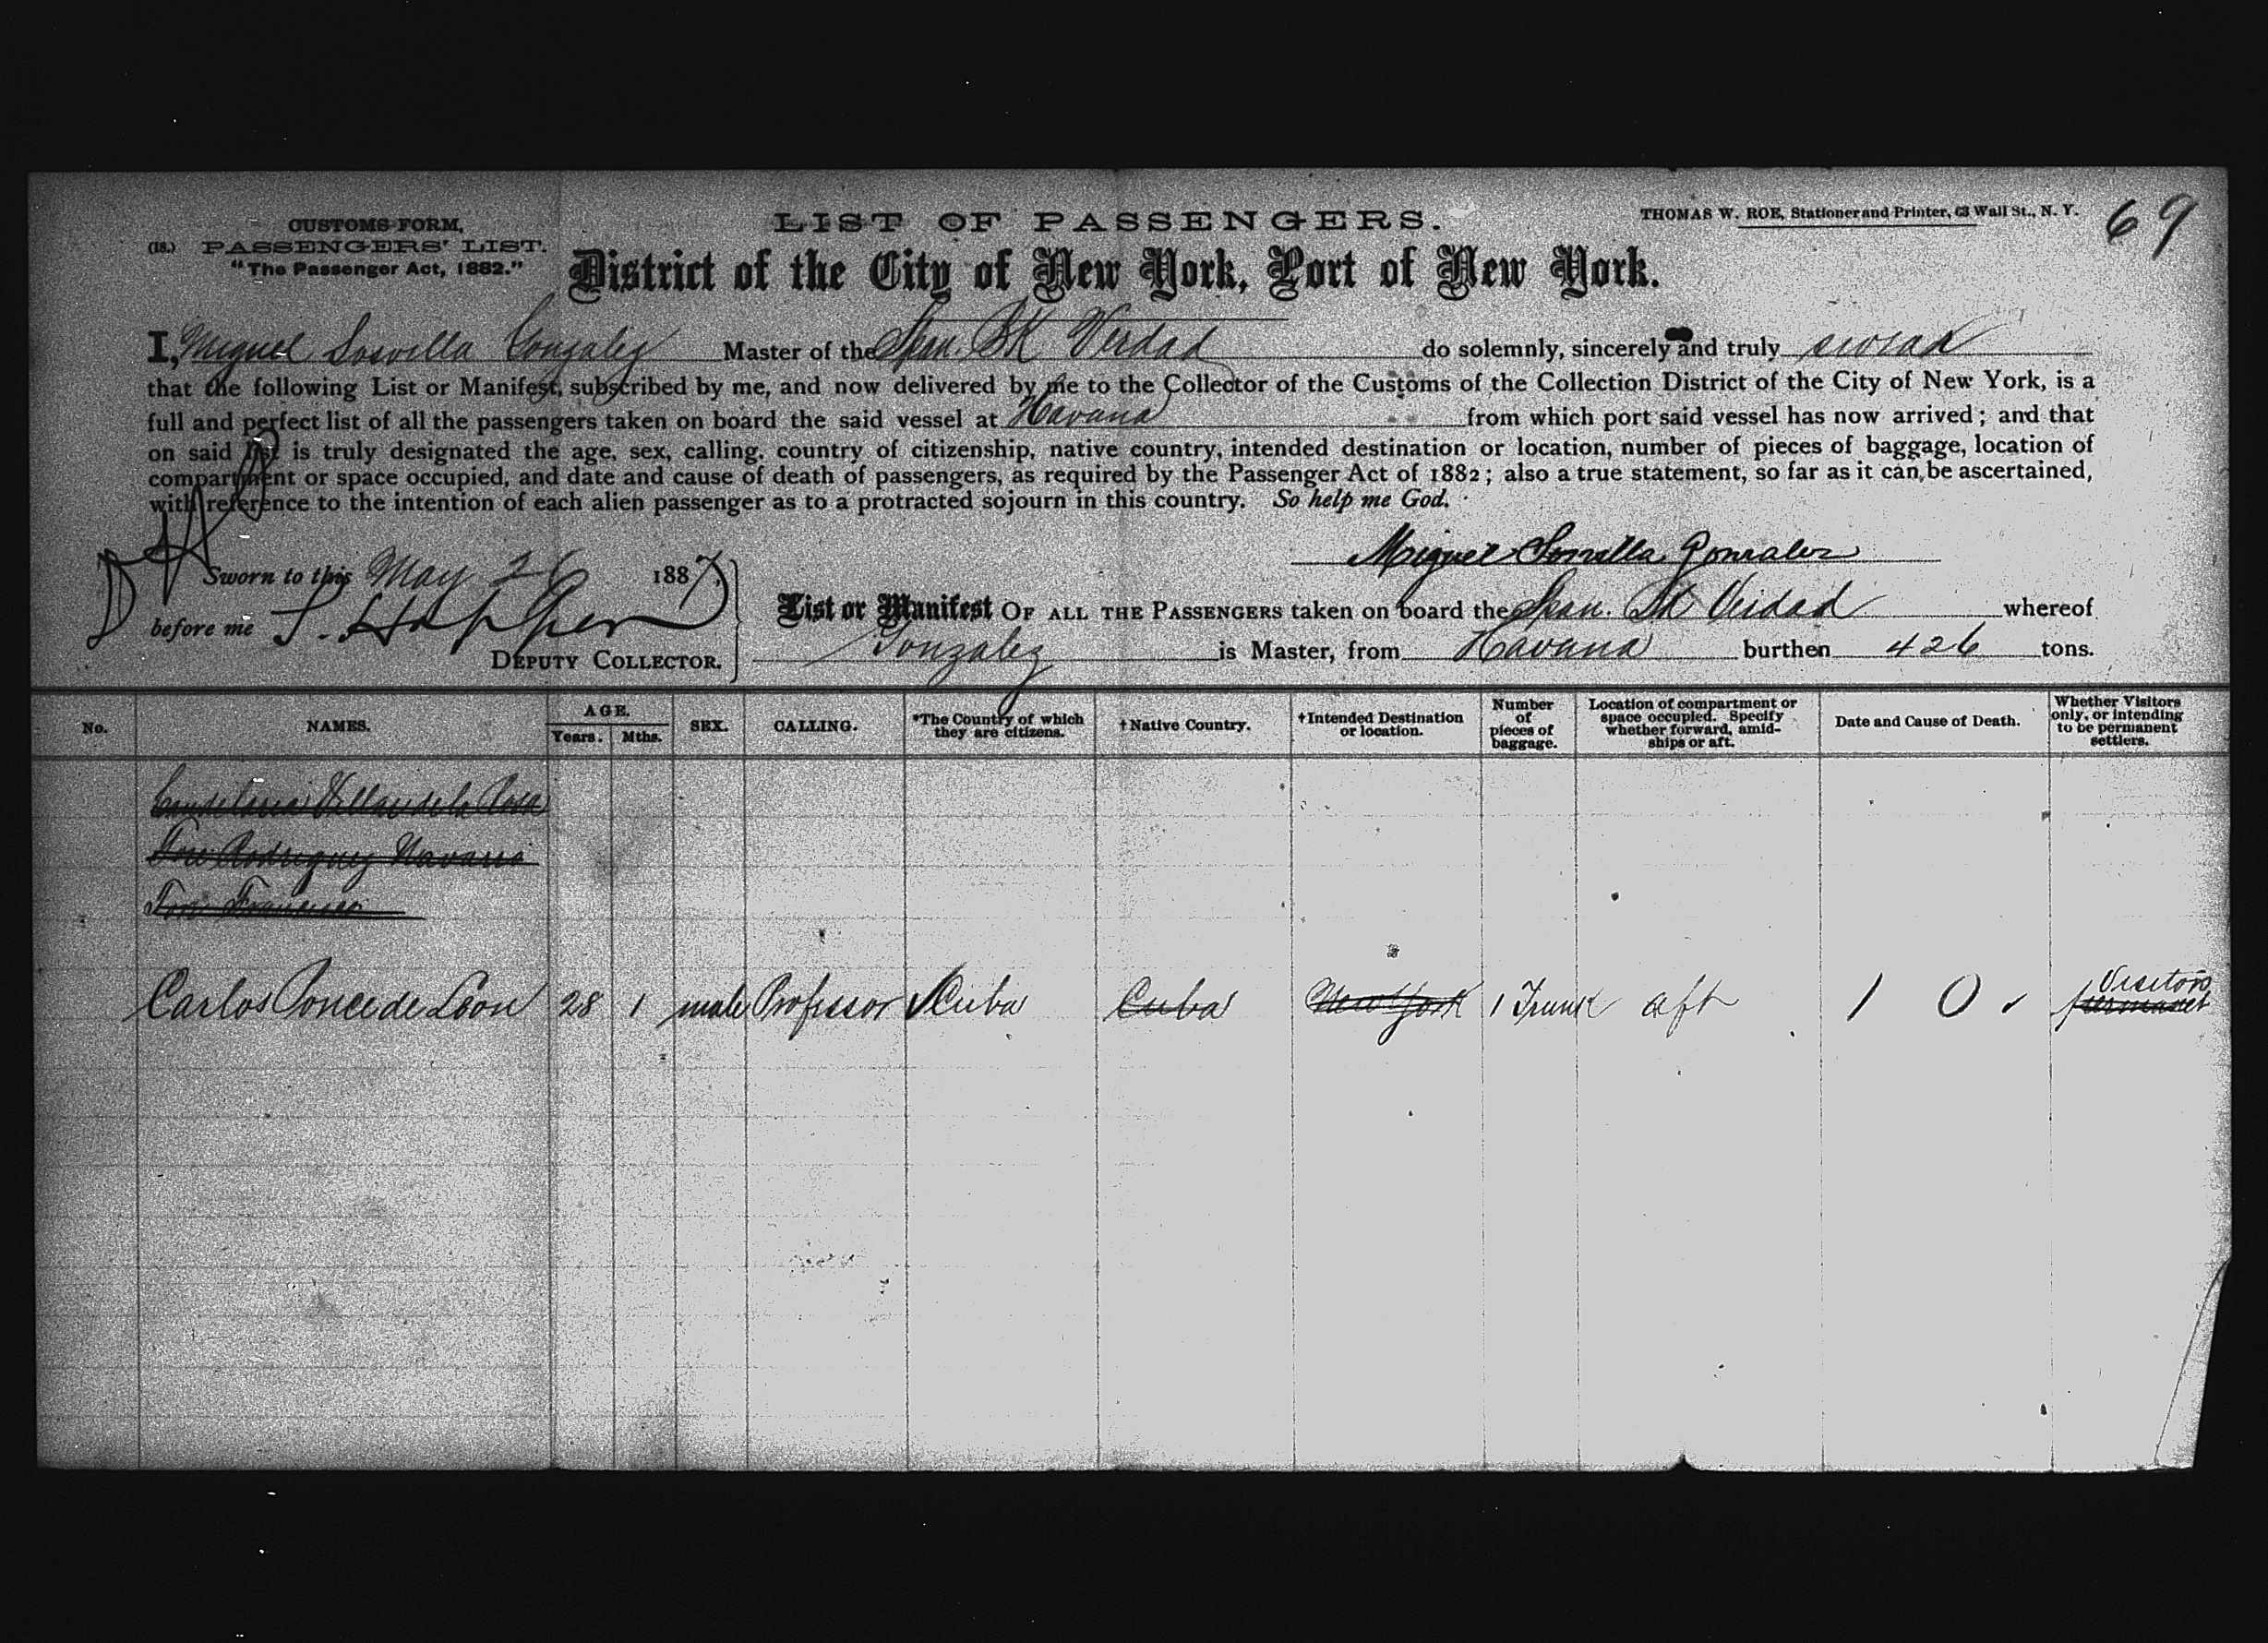 CUSTOMS FORM,
(18.) PASSENGERS' LIST.
"The Passenger Act, 1882."
LIST OF PASSENGERS.
THOMAS W. ROE, Stationer and Printer, 63 Wall St., N. Y.
69
District of the City of New York, Port of New York.
I, Miguel Sosvilla Gonzalez Master of the Span. Bk Verdad do solemnly, sincerely and truly swear
that the following List or Manifest, subscribed by me, and now delivered by me to the Collector of the Customs of the Collection District of the City of New York, is a
full and perfect list of all the passengers taken on board the said vessel at Havana from which port said vessel has now arrived; and that
on said list is truly designated the age, sex, calling, country of citizenship, native country, intended destination or location, number of pieces of baggage, location of
compartment or space occupied, and date and cause of death of passengers, as required by the Passenger Act of 1882; also a true statement, so far as it can be ascertained,
with reference to the intention of each alien passenger as to a protracted sojourn in this country. So help me God.
Miguel Sosvilla Gonzalez
Sworn to this May 26 1887,
before me S. Hopper
DEPUTY COLLECTOR.
List or Manifest OF ALL THE PASSENGERS taken on board the Span. Bk Verdad whereof
Gonzalez is Master, from Havana burthen 426 tons.
No. NAMES. AGE. Years. Mths. SEX. CALLING. *The Country of which they are citizens. †Native Country. †Intended Destination or location. Number of pieces of baggage. Location of compartment or space occupied. Specify whether forward, amidships or aft. Date and Cause of Death. Whether Visitors only, or intending to be permanent settlers.
Candelaria Villar de la Rosa
José Rodriguez Navarro
José Francisco
Carlos Ponce de Leon 28 1 male Professor Cuba Cuba New York 1 Trunk aft 1 0 Visitors permanet